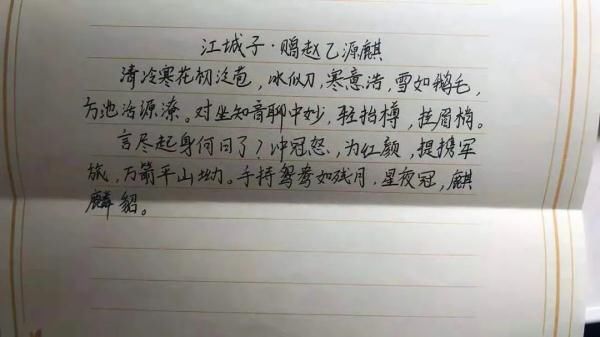 江城子·赐赵乙源麒
清冷寒花初泛苞，冰似刀，寒意浩，雪如鹅毛，
方池浩源潦。对坐知音聊中妙，轻抬樽，挂眉梢。
言尽起身何日了？冲冠怒，为红颜，提携军
旅，万箭平山坳。手持鸳鸯如残月，星夜冠，麒
麟貂。